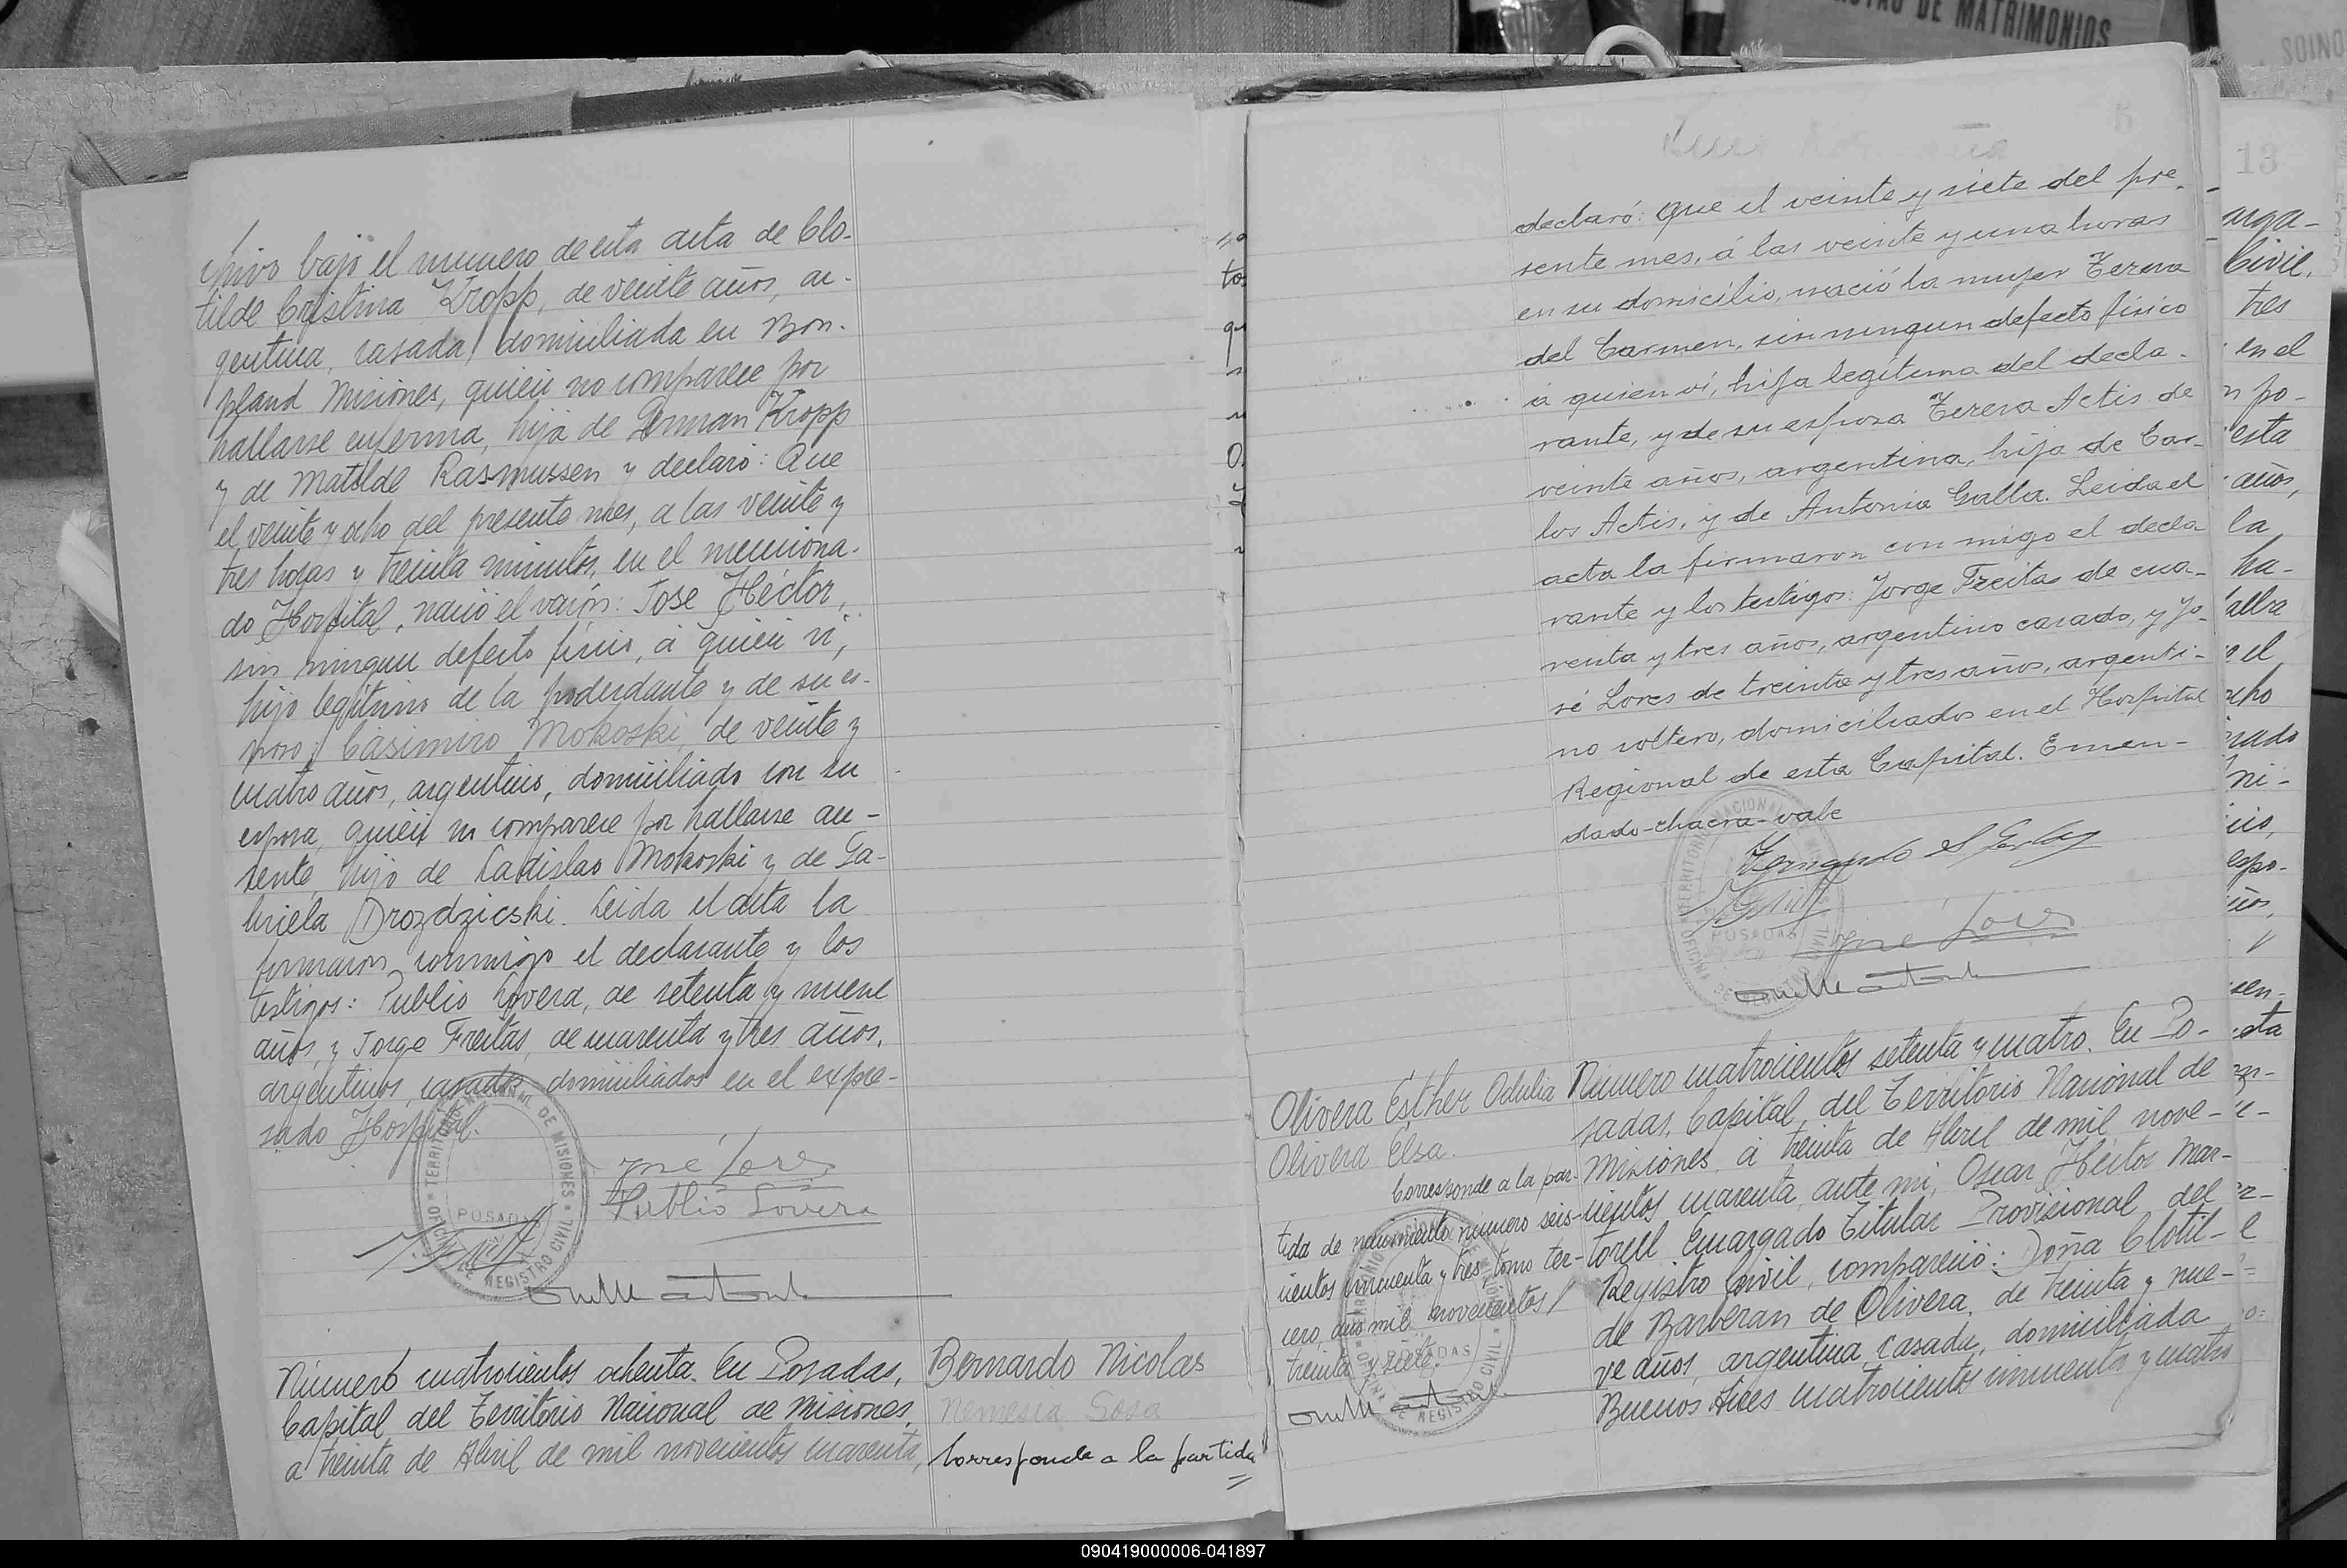 chivo bajo el numero de esta acta de Clo-
tilde Cristina Kropp, de veinte años, ar-
gentina, casada, domiciliada en Bon-
pland Misiones, quien no comparece por
hallarse enferma, hija de German Kropp
y de Matilde Rasmussen y declaró: Que
el veinte y ocho del presente mes, a las veinte y
tres horas y treinta minutos, en el menciona-
do Hospital, nació el varón: Jose Héctor,
sin ningun defecto físico, á quien ví,
hijo legítimo de la poderdante y de su es-
poso: Casimiro Mokoski, de veinte y
cuatro años, argentino, domiciliado con su
esposa, quien no comparece por hallarse au-
sente, hijo de Ladislao Mokoski y de Ga-
briela Drozdzicski. Leida el acta la
firmaron conmigo el declarante y los
testigos: Publio Lovera, de setenta y nueve
años, y Jorge Freitas, de cuarenta y tres años,
argentinos, casados, domiciliados en el expre-
sado Hospital.
TERRITORIO NACIONAL DE MISIONES
OFICINA DE REGISTRO CIVIL
POSADAS
José Lores
Publio Lovera
Número cuatrocientos ochenta. En Posadas,
Capital del Territorio Nacional de Misiones,
a treinta de Abril de mil novecientos cuarenta,
Bernardo Nicolas
Nemesia Sosa
Corresponde a la partida
declaró: que el veinte y siete del pre-
sente mes, á las veinte y una horas
en su domicilio, nació la mujer Teresa
del Carmen, sin ningun defecto físico
á quien ví, hija legítima del decla-
rante, y de su esposa Teresa Actis de
veinte años, argentina, hija de Car-
los Actis, y de Antonia Galla. Leida el
acta la firmaron con migo el decla
rante y los testigos: Jorge Freitas de cua-
renta y tres años, argentino casado, y Jo-
sé Lores de treinta y tres años, argenti-
no soltero, domiciliados en el Hospital
Regional de esta Capital. Emen-
dado-chacra-vale
TERRITORIO NACIONAL DE MISIONES
OFICINA DE REGISTRO CIVIL
POSADAS
José Lores
Olivera Esther Odulia
Olivera Elsa.
Corresponde a la par-
tida de nacimiento número seis-
cientos cincuenta y tres, tomo ter-
cero, año mil novecientos
treinta y siete.
POSADAS
REGISTRO CIVIL
Número cuatrocientos setenta y cuatro. En Po-
sadas, Capital, del Territorio Nacional de
Misiones, á treinta de Abril de mil nove-
cientos cuarenta, ante mi, Oscar Héctor Mar-
torell Encargado Titular Provisional del
Registro Civil, compareció: Doña Clotil-
de Barberan de Olivera, de treinta y nue-
ve años, argentina, casada, domiciliada
Buenos Aires cuatrocientos cincuenta y cuatro
13
Civil,
tres
en el
esta
años,
la
ha-
el
DE MATRIMONIOS
090419000006-041897